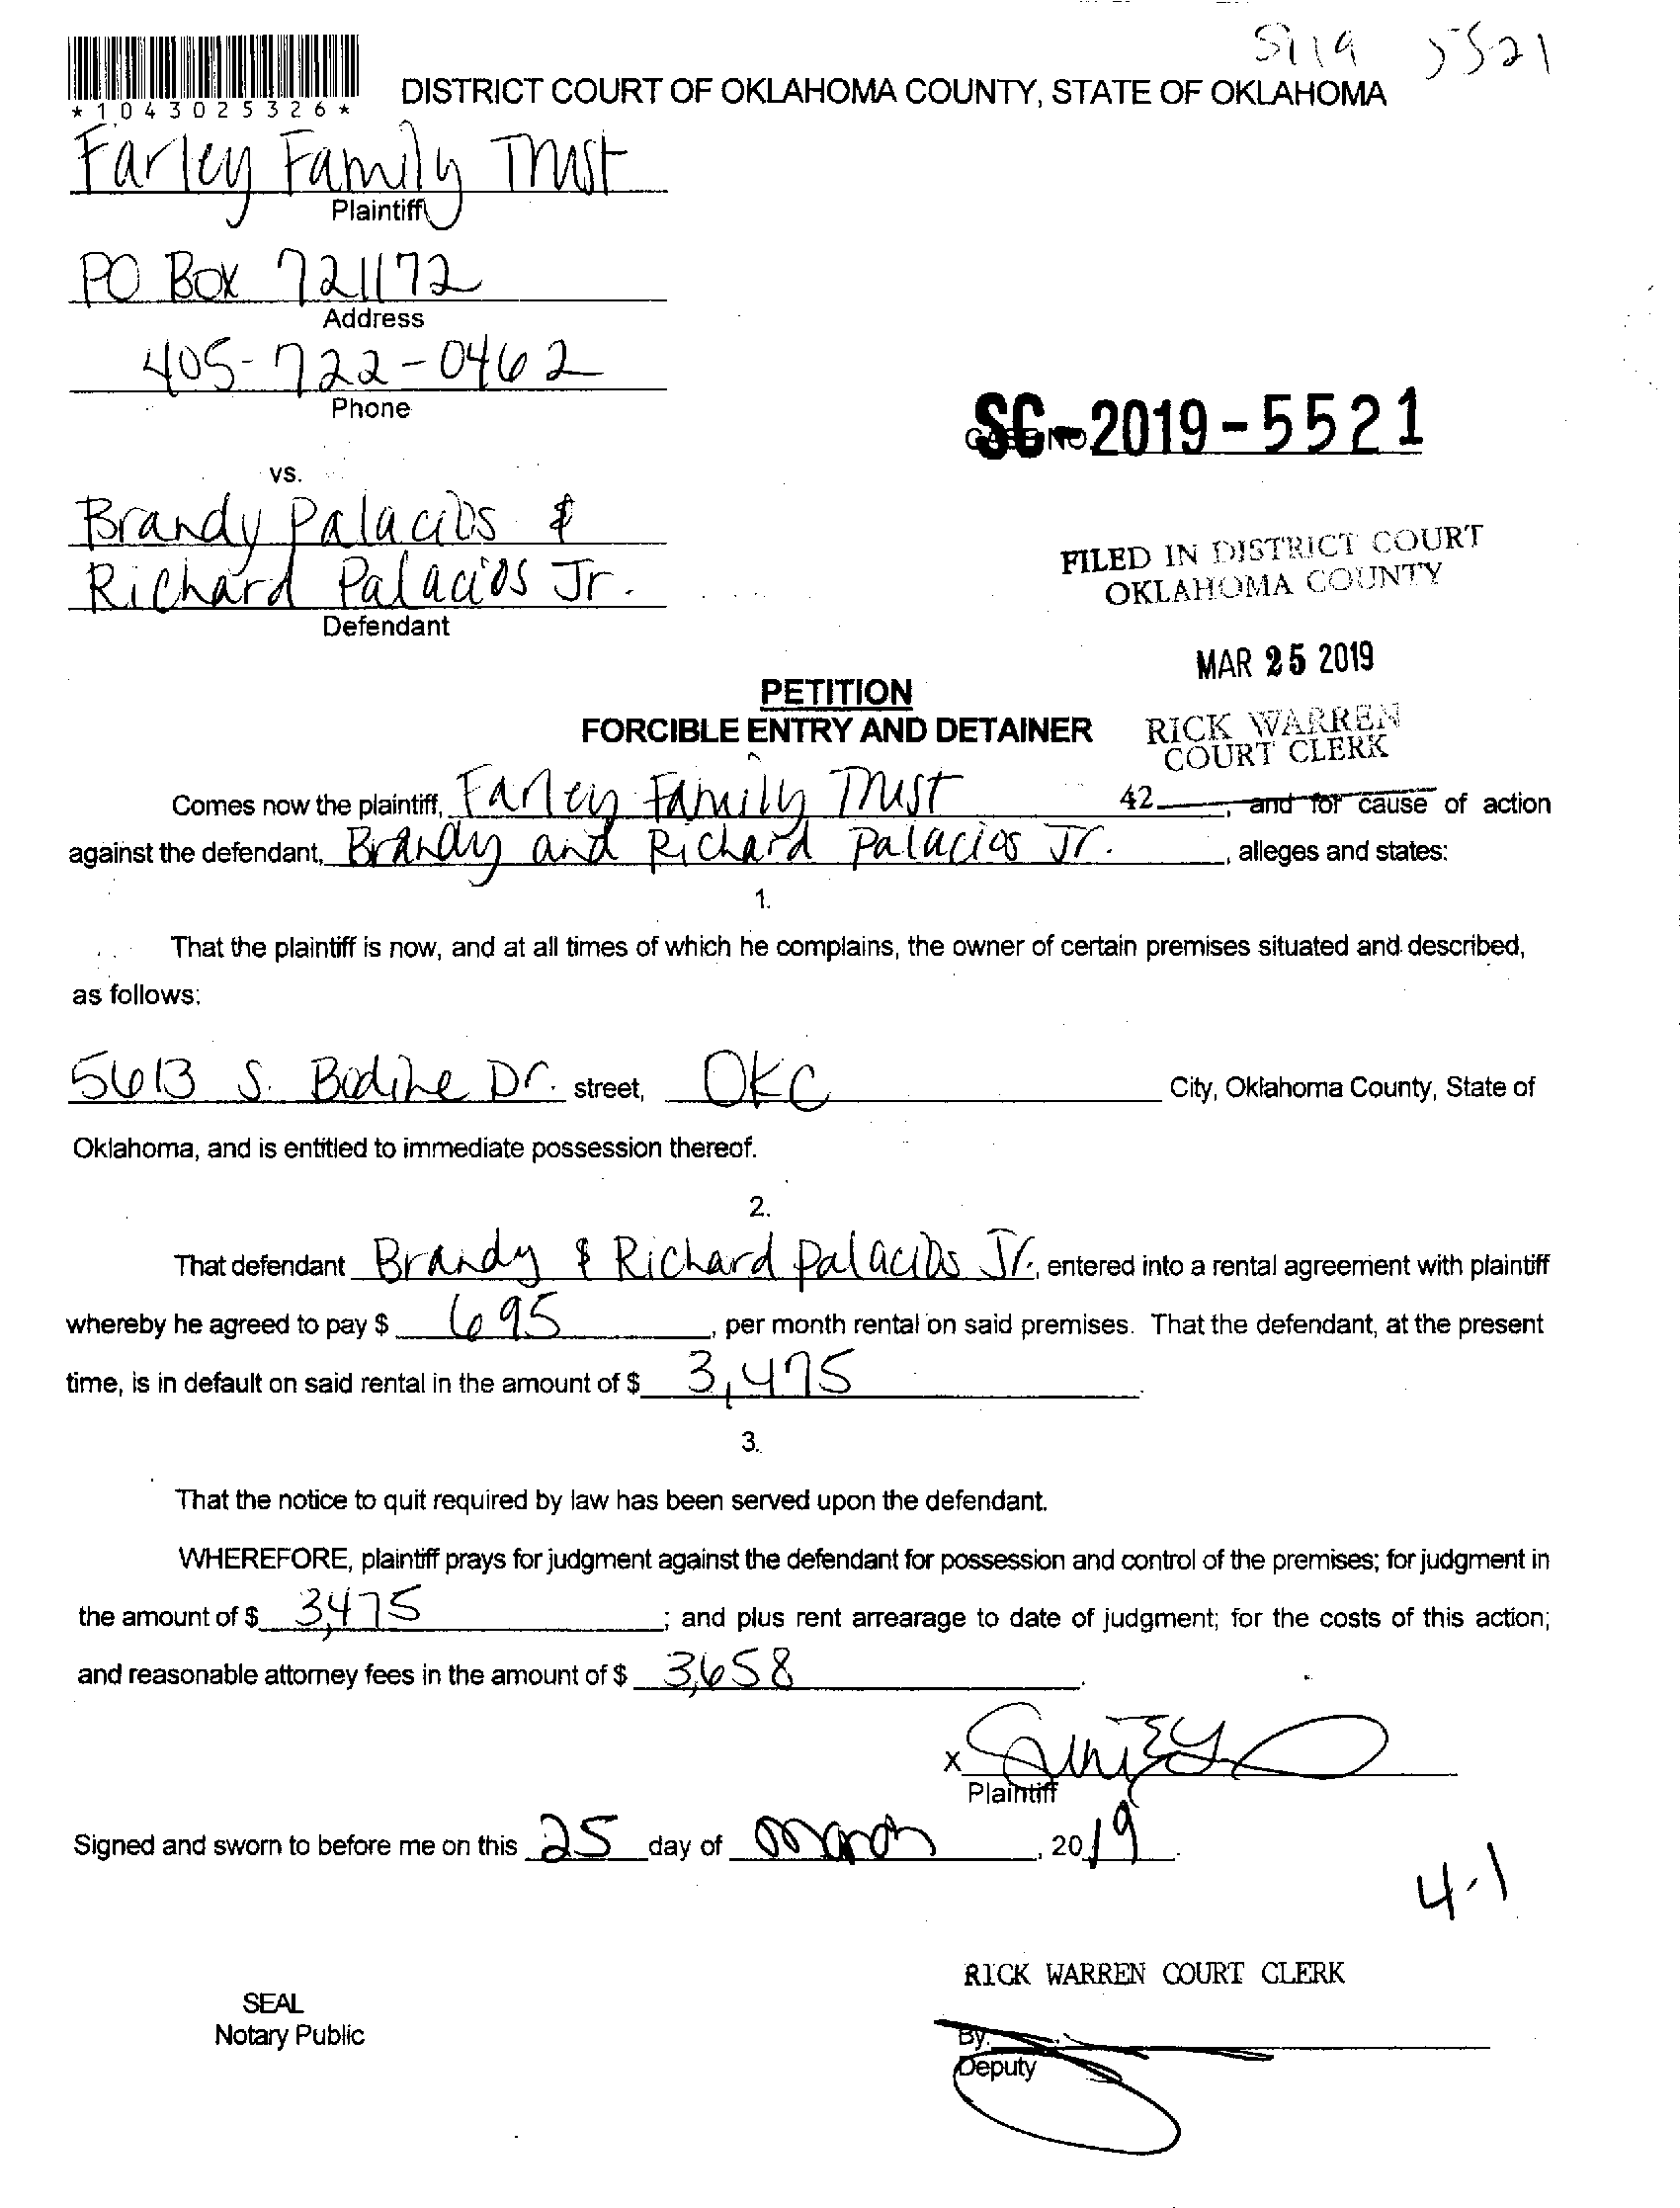 5219 5521
*1043025326*
DISTRICT COURT OF OKLAHOMA COUNTY, STATE OF OKLAHOMA
Farley Family Trust
Plaintiff
PO Box 721172
Address
405-722-0462
Phone
SC-2019-5521
CASE NO
vs.
Brandy Palacios &
Richard Palacios Jr.
Defendant
FILED IN DISTRICT COURT
OKLAHOMA COUNTY
MAR 25 2019
RICK WARREN
COURT CLERK
PETITION
FORCIBLE ENTRY AND DETAINER
42
Comes now the plaintiff, Farley Family Trust, and for cause of action
against the defendant, Brandy and Richard Palacios Jr., alleges and states:
1.
That the plaintiff is now, and at all times of which he complains, the owner of certain premises situated and described,
as follows:
5613 S. Bodine Dr. street, OKC City, Oklahoma County, State of
Oklahoma, and is entitled to immediate possession thereof.
2.
That defendant Brandy & Richard Palacios Jr., entered into a rental agreement with plaintiff
whereby he agreed to pay $ 695, per month rental on said premises. That the defendant, at the present
time, is in default on said rental in the amount of $ 3,475.
3.
That the notice to quit required by law has been served upon the defendant.
WHEREFORE, plaintiff prays for judgment against the defendant for possession and control of the premises; for judgment in
the amount of $ 3,475; and plus rent arrearage to date of judgment; for the costs of this action;
and reasonable attorney fees in the amount of $ 3,658.
X
Plaintiff
Signed and sworn to before me on this 25 day of March, 2019.
4-1
RICK WARREN COURT CLERK
SEAL
Notary Public
By.
Deputy